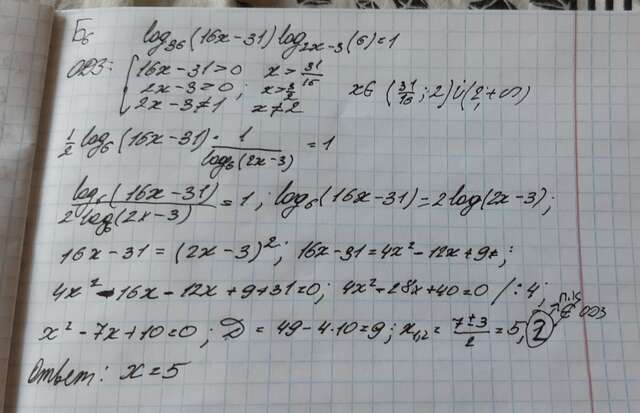 Б6 log₃₆(16x-31)log₂ₓ₋₃(6)=1
ОДЗ: { 16x-31>0 x>31/16
2x-3>0; x>3/2 x∈(31/16;2)∪(2;+∞)
2x-3≠1 x≠2
1/2 log₆(16x-31)·1/log₆(2x-3)=1
log₆(16x-31)/2log₆(2x-3)=1; log₆(16x-31)=2log(2x-3);
16x-31=(2x-3)²; 16x-31=4x²-12x+9;
4x²-16x-12x+9+31=0; 4x²-28x+40=0 /:4;
x²-7x+10=0; D=49-4·10=9; x₁,₂=7±3/2=5; 2 ∉ ОДЗ
Ответ: x=5